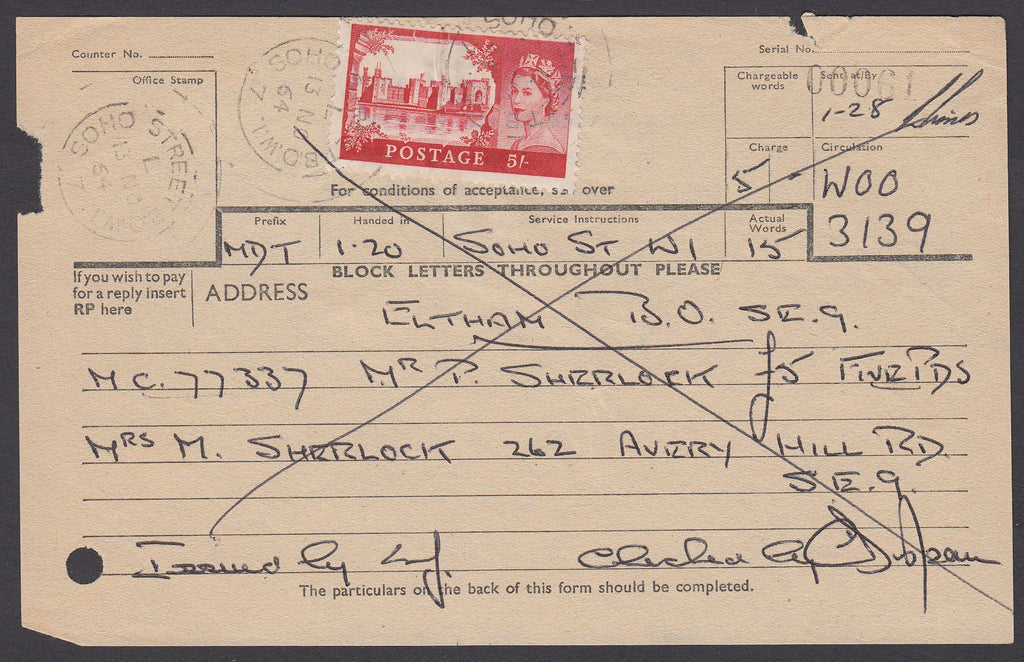 Counter No.
Serial No.
Office Stamp
SOHO STREET
13
64
SOHO
13 NO
64
B.O.W.1.
SOHO
POSTAGE 5/-
Chargeable words
Sent at/By
00061
1-28
Charge
5
Circulation
WOO
3139
For conditions of acceptance, see over
Prefix
MDT
Handed in
1.20
Service Instructions
SOHO ST W1
Actual Words
15
BLOCK LETTERS THROUGHOUT PLEASE
If you wish to pay
for a reply insert
RP here
ADDRESS
ELTHAM B.O. S.E.9.
M C. 77337 MR P. SHERLOCK £5 FIVE PDS
MRS M. SHERLOCK 262 AVERY HILL RD.
S.E.9.
Issued by
Checked by
The particulars on the back of this form should be completed.